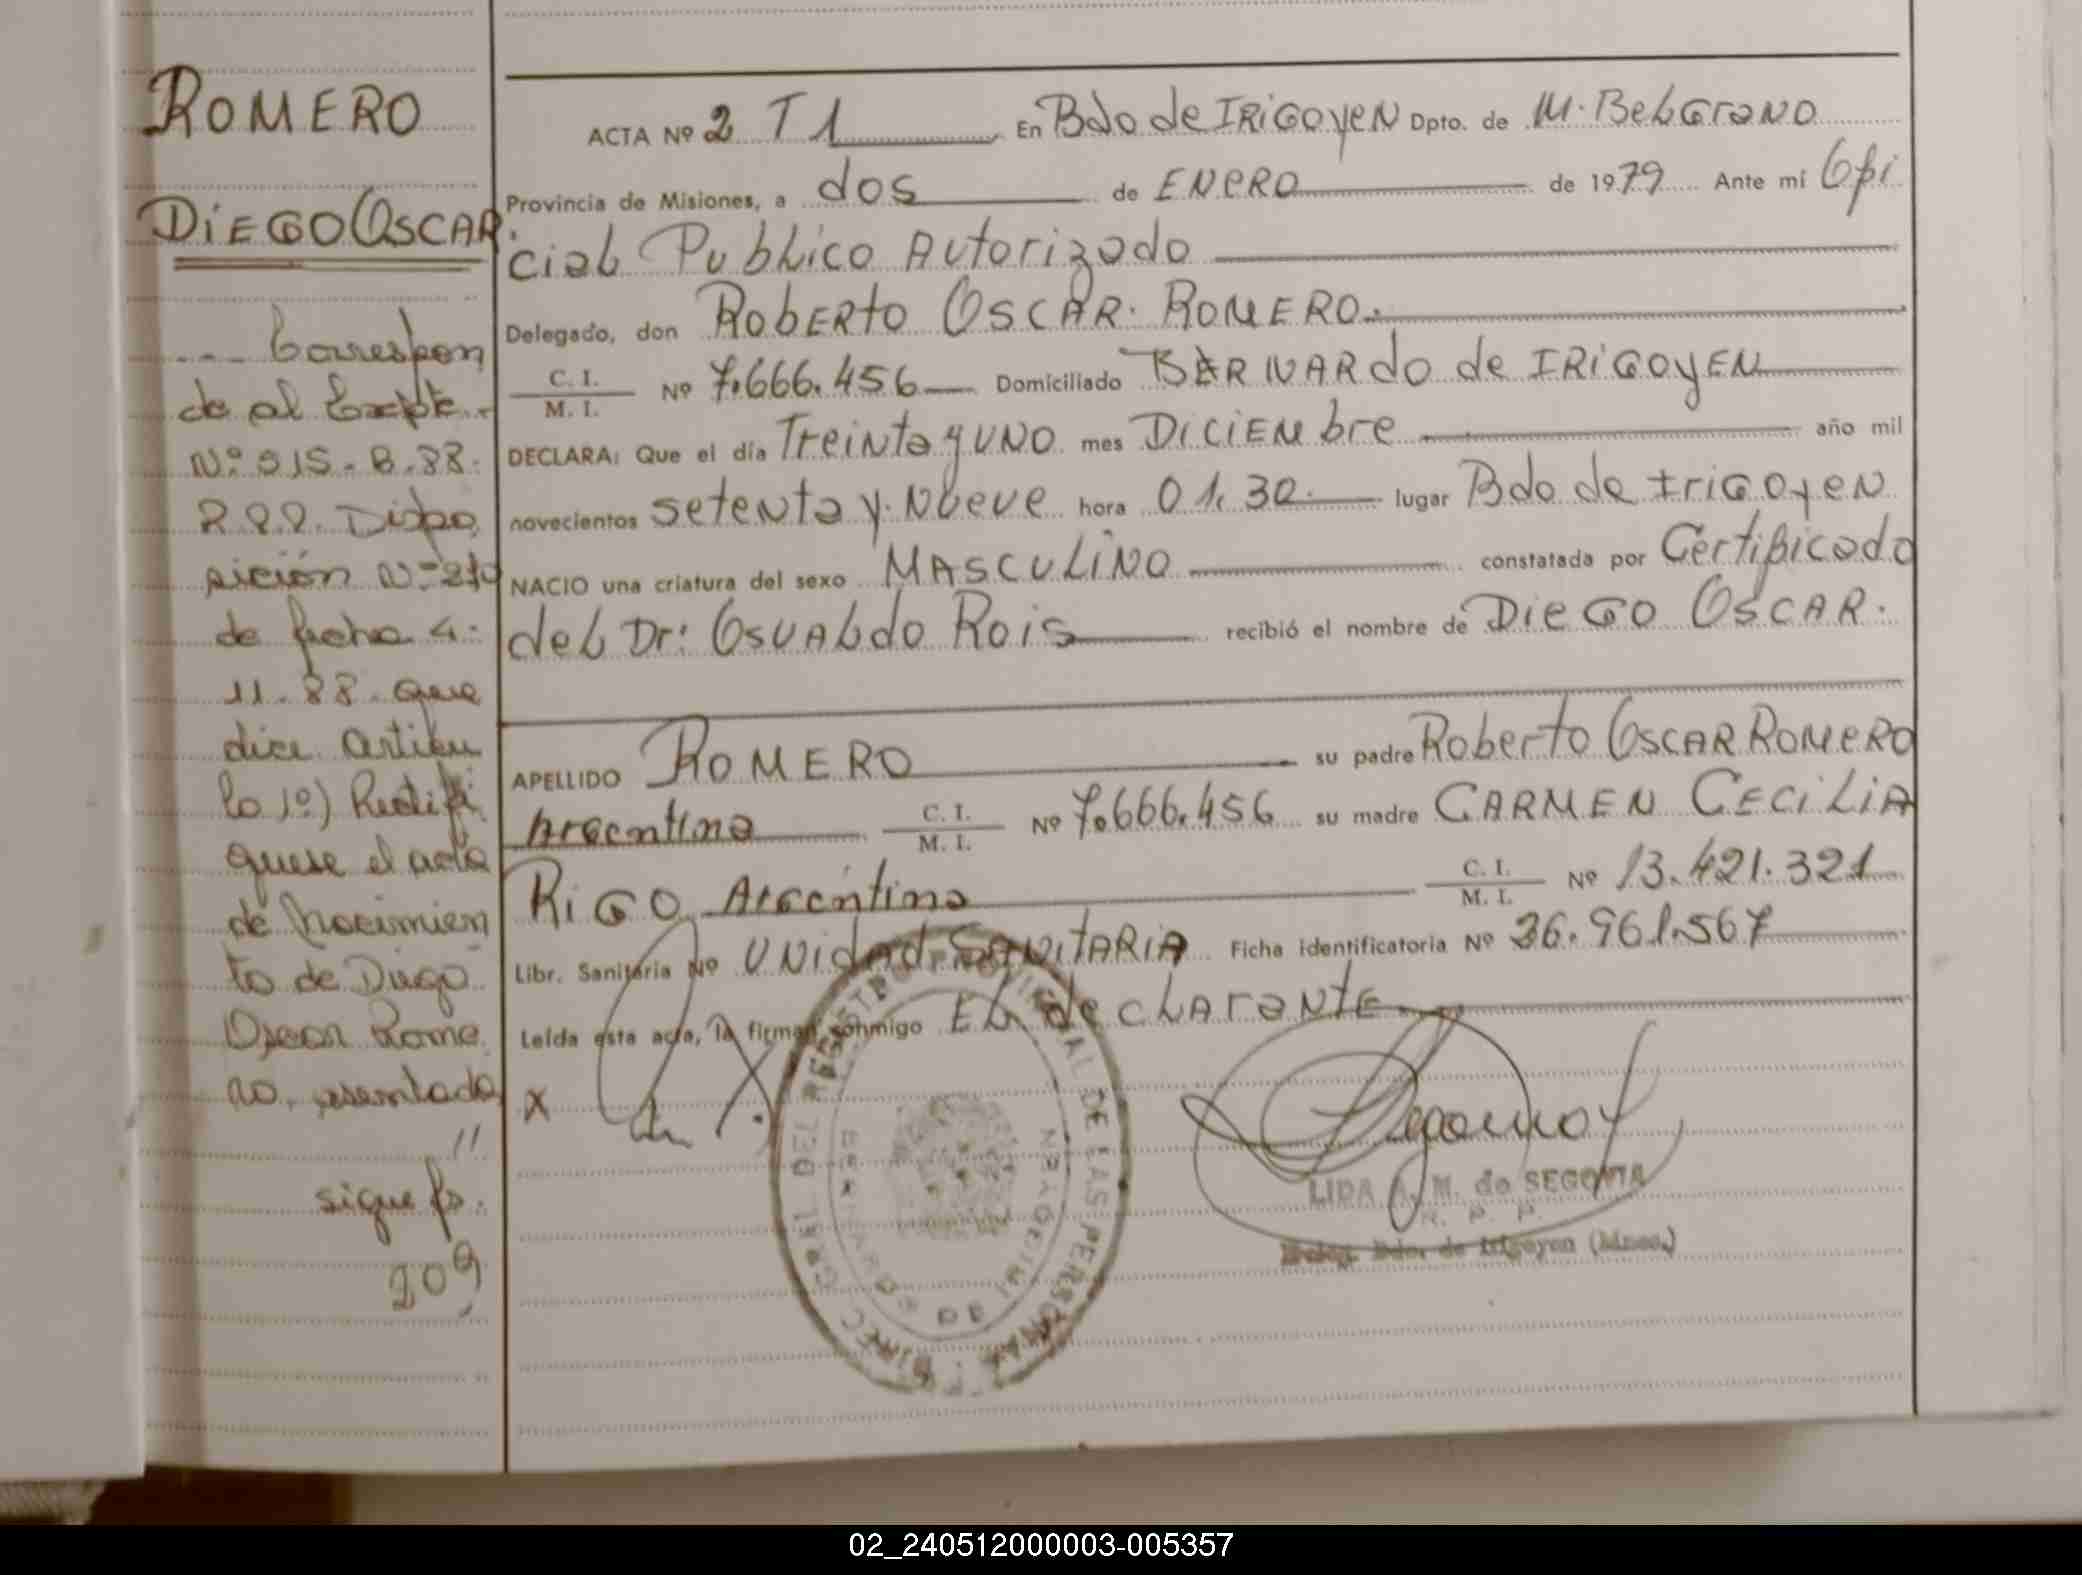 ROMERO
DIEGO OSCAR
Correspon
de al Expte.
Nº 915-B-88-
R.P.P. Dispo
sición Nº 210
de fecha 4-
11-88 que
dice Artícu
lo 1º) Rectifi
quese el acta
de Nacimien
to de Diego
Oscar Rome
ro, asentada
//
sigue fº.
209
ACTA Nº 2 T1 En Bdo de IRIGOYEN Dpto. de M. BELGrano
Provincia de Misiones, a dos de ENERO de 1979 Ante mí Ofi
cial Publico Autorizado
Delegado, don RobERto OSCAR ROMERO.
C. I.
M. I. Nº 7.666.456 Domiciliado BERNARdo de IRIGOYEN
DECLARA: Que el día Treinta y UNO mes DICIEMbre año mil
novecientos setenta y Nueve hora 01.30 lugar Bdo de IriGOyeN
NACIO una criatura del sexo MASCULINO constatada por Certificado
del Dr: OSUALdo Rois recibió el nombre de DIEGO OSCAR.
APELLIDO ROMERO su padre Roberto OSCAR ROMERO
Argentina C. I.
M. I. Nº 7.666.456 su madre CARMEN CECILIA
RIGO Argentina C. I.
M. I. Nº 13.421.321
Libr. Sanitaria Nº UNidad SANITARIA Ficha identificatoria Nº 26.961.567
Leída esta acta, la firman conmigo EL declarante
X
DIREC. GRAL. DEL REGISTRO PROVINCIAL DE LAS PERSONAS
BERNARDO DE IRIGOYEN
LIDA A. M. de SEGOVIA
R. P. P.
Deleg. Bdo. de Irigoyen (Mnes.)
02_240512000003-005357